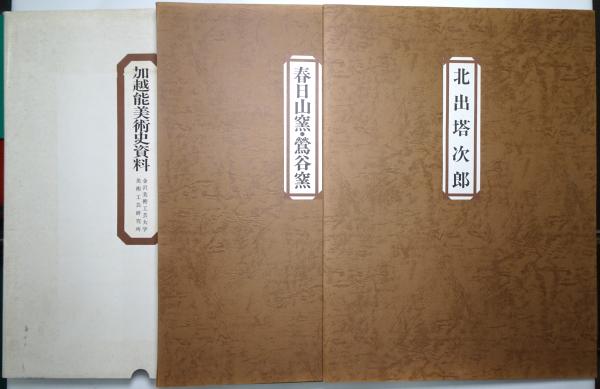 加越能美術史資料
金沢美術工芸大学
美術工芸研究所
春日山窯・鶯谷窯
北出塔次郎